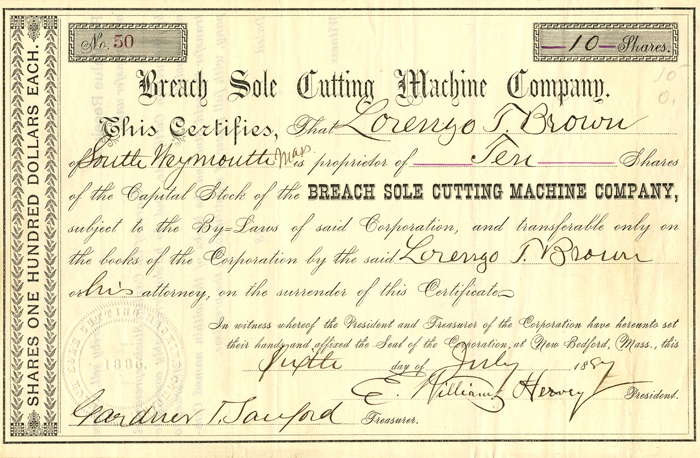 No. 50
—10— Shares.
Breach Sole Cutting Machine Company.
This Certifies, That Lorenzo T. Brown
of South Weymouth Mass. is proprietor of Ten Shares
of the Capital Stock of the BREACH SOLE CUTTING MACHINE COMPANY,
subject to the By=Laws of said Corporation, and transferable only on
the books of the Corporation by the said Lorenzo T. Brown
or his attorney, on the surrender of this Certificate
In witness whereof the President and Treasurer of the Corporation have hereunto set
their hands and affixed the Seal of the Corporation, at New Bedford, Mass., this
Sixth day of July 1887
E. Williams Hervey President.
Gardner T. Sanford Treasurer.
SHARES ONE HUNDRED DOLLARS EACH.
1886.